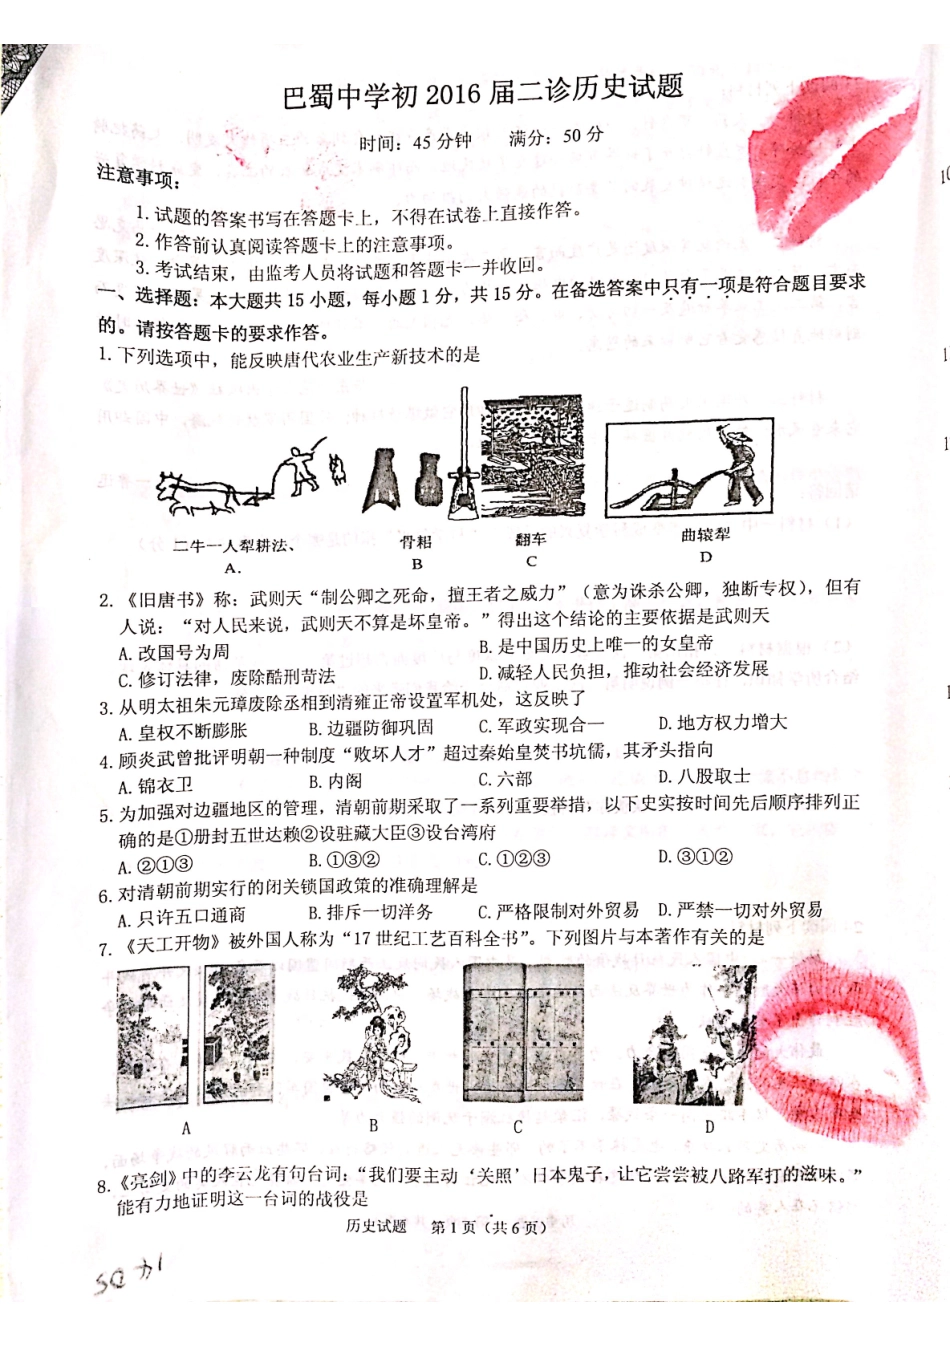 巴蜀中学初 2016 届二诊历史试题
时间：45 分钟 满分：50 分
注意事项：
1. 试题的答案书写在答题卡上，不得在试卷上直接作答。
2. 作答前认真阅读答题卡上的注意事项。
3. 考试结束，由监考人员将试题和答题卡一并收回。
一、选择题：本大题共 15 小题，每小题 1 分，共 15 分。在备选答案中只有一项是符合题目要求
的。请按答题卡的要求作答。
1. 下列选项中，能反映唐代农业生产新技术的是
二牛一人犁耕法、 骨耜 翻车 曲辕犁
A. B C D
2. 《旧唐书》称：武则天“制公卿之死命，擅王者之威力”（意为诛杀公卿，独断专权），但有
人说：“对人民来说，武则天不算是坏皇帝。”得出这个结论的主要依据是武则天
A. 改国号为周 B. 是中国历史上唯一的女皇帝
C. 修订法律，废除酷刑苛法 D. 减轻人民负担，推动社会经济发展
3. 从明太祖朱元璋废除丞相到清雍正帝设置军机处，这反映了
A. 皇权不断膨胀 B. 边疆防御巩固 C. 军政实现合一 D. 地方权力增大
4. 顾炎武曾批评明朝一种制度“败坏人才”超过秦始皇焚书坑儒，其矛头指向
A. 锦衣卫 B. 内阁 C. 六部 D. 八股取士
5. 为加强对边疆地区的管理，清朝前期采取了一系列重要举措，以下史实按时间先后顺序排列正
确的是①册封五世达赖②设驻藏大臣③设台湾府
A. ②①③ B. ①③② C. ①②③ D. ③①②
6. 对清朝前期实行的闭关锁国政策的准确理解是
A. 只许五口通商 B. 排斥一切洋务 C. 严格限制对外贸易 D. 严禁一切对外贸易
7. 《天工开物》被外国人称为“17 世纪工艺百科全书”。下列图片与本著作有关的是
A B C D
8. 《亮剑》中的李云龙有句台词：“我们要主动‘关照’日本鬼子，让它尝尝被八路军打的滋味。”
能有力地证明这一台词的战役是
历史试题 第 1 页（共 6 页）